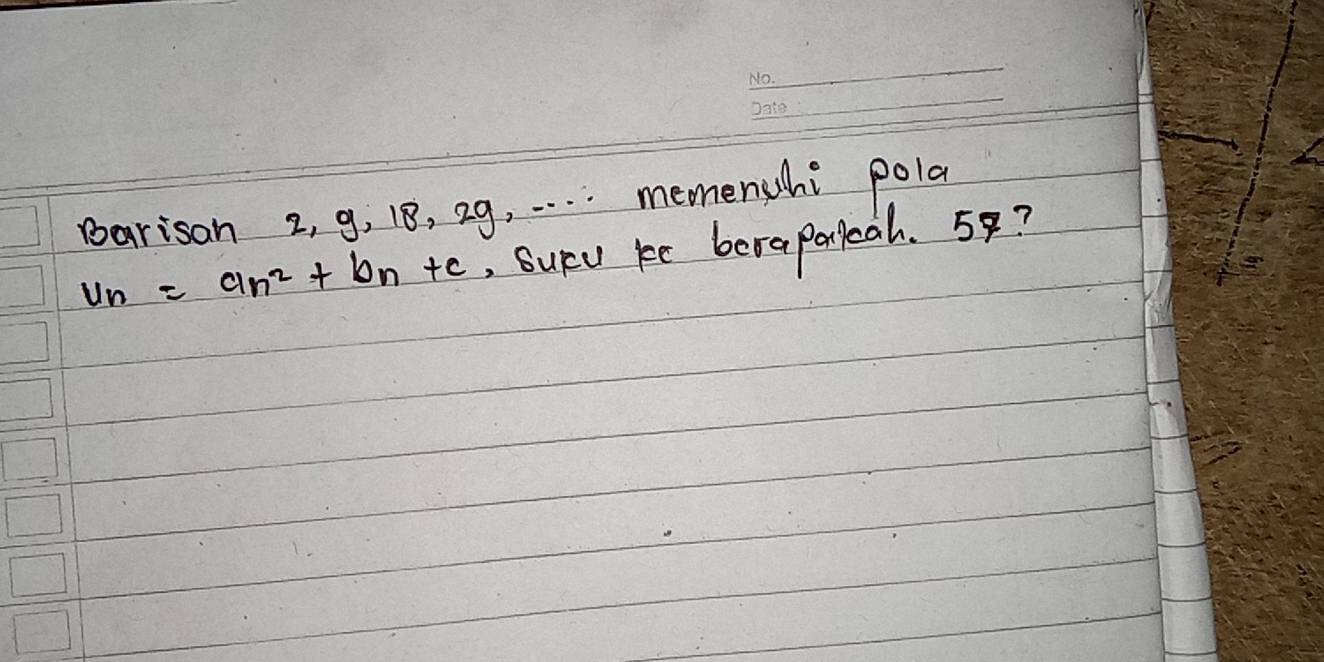 No.
Date
Barisan 2, 9, 18, 29, .... memenuhi pola
Un = an² + bn + c, Suku ke berapakah. 57?